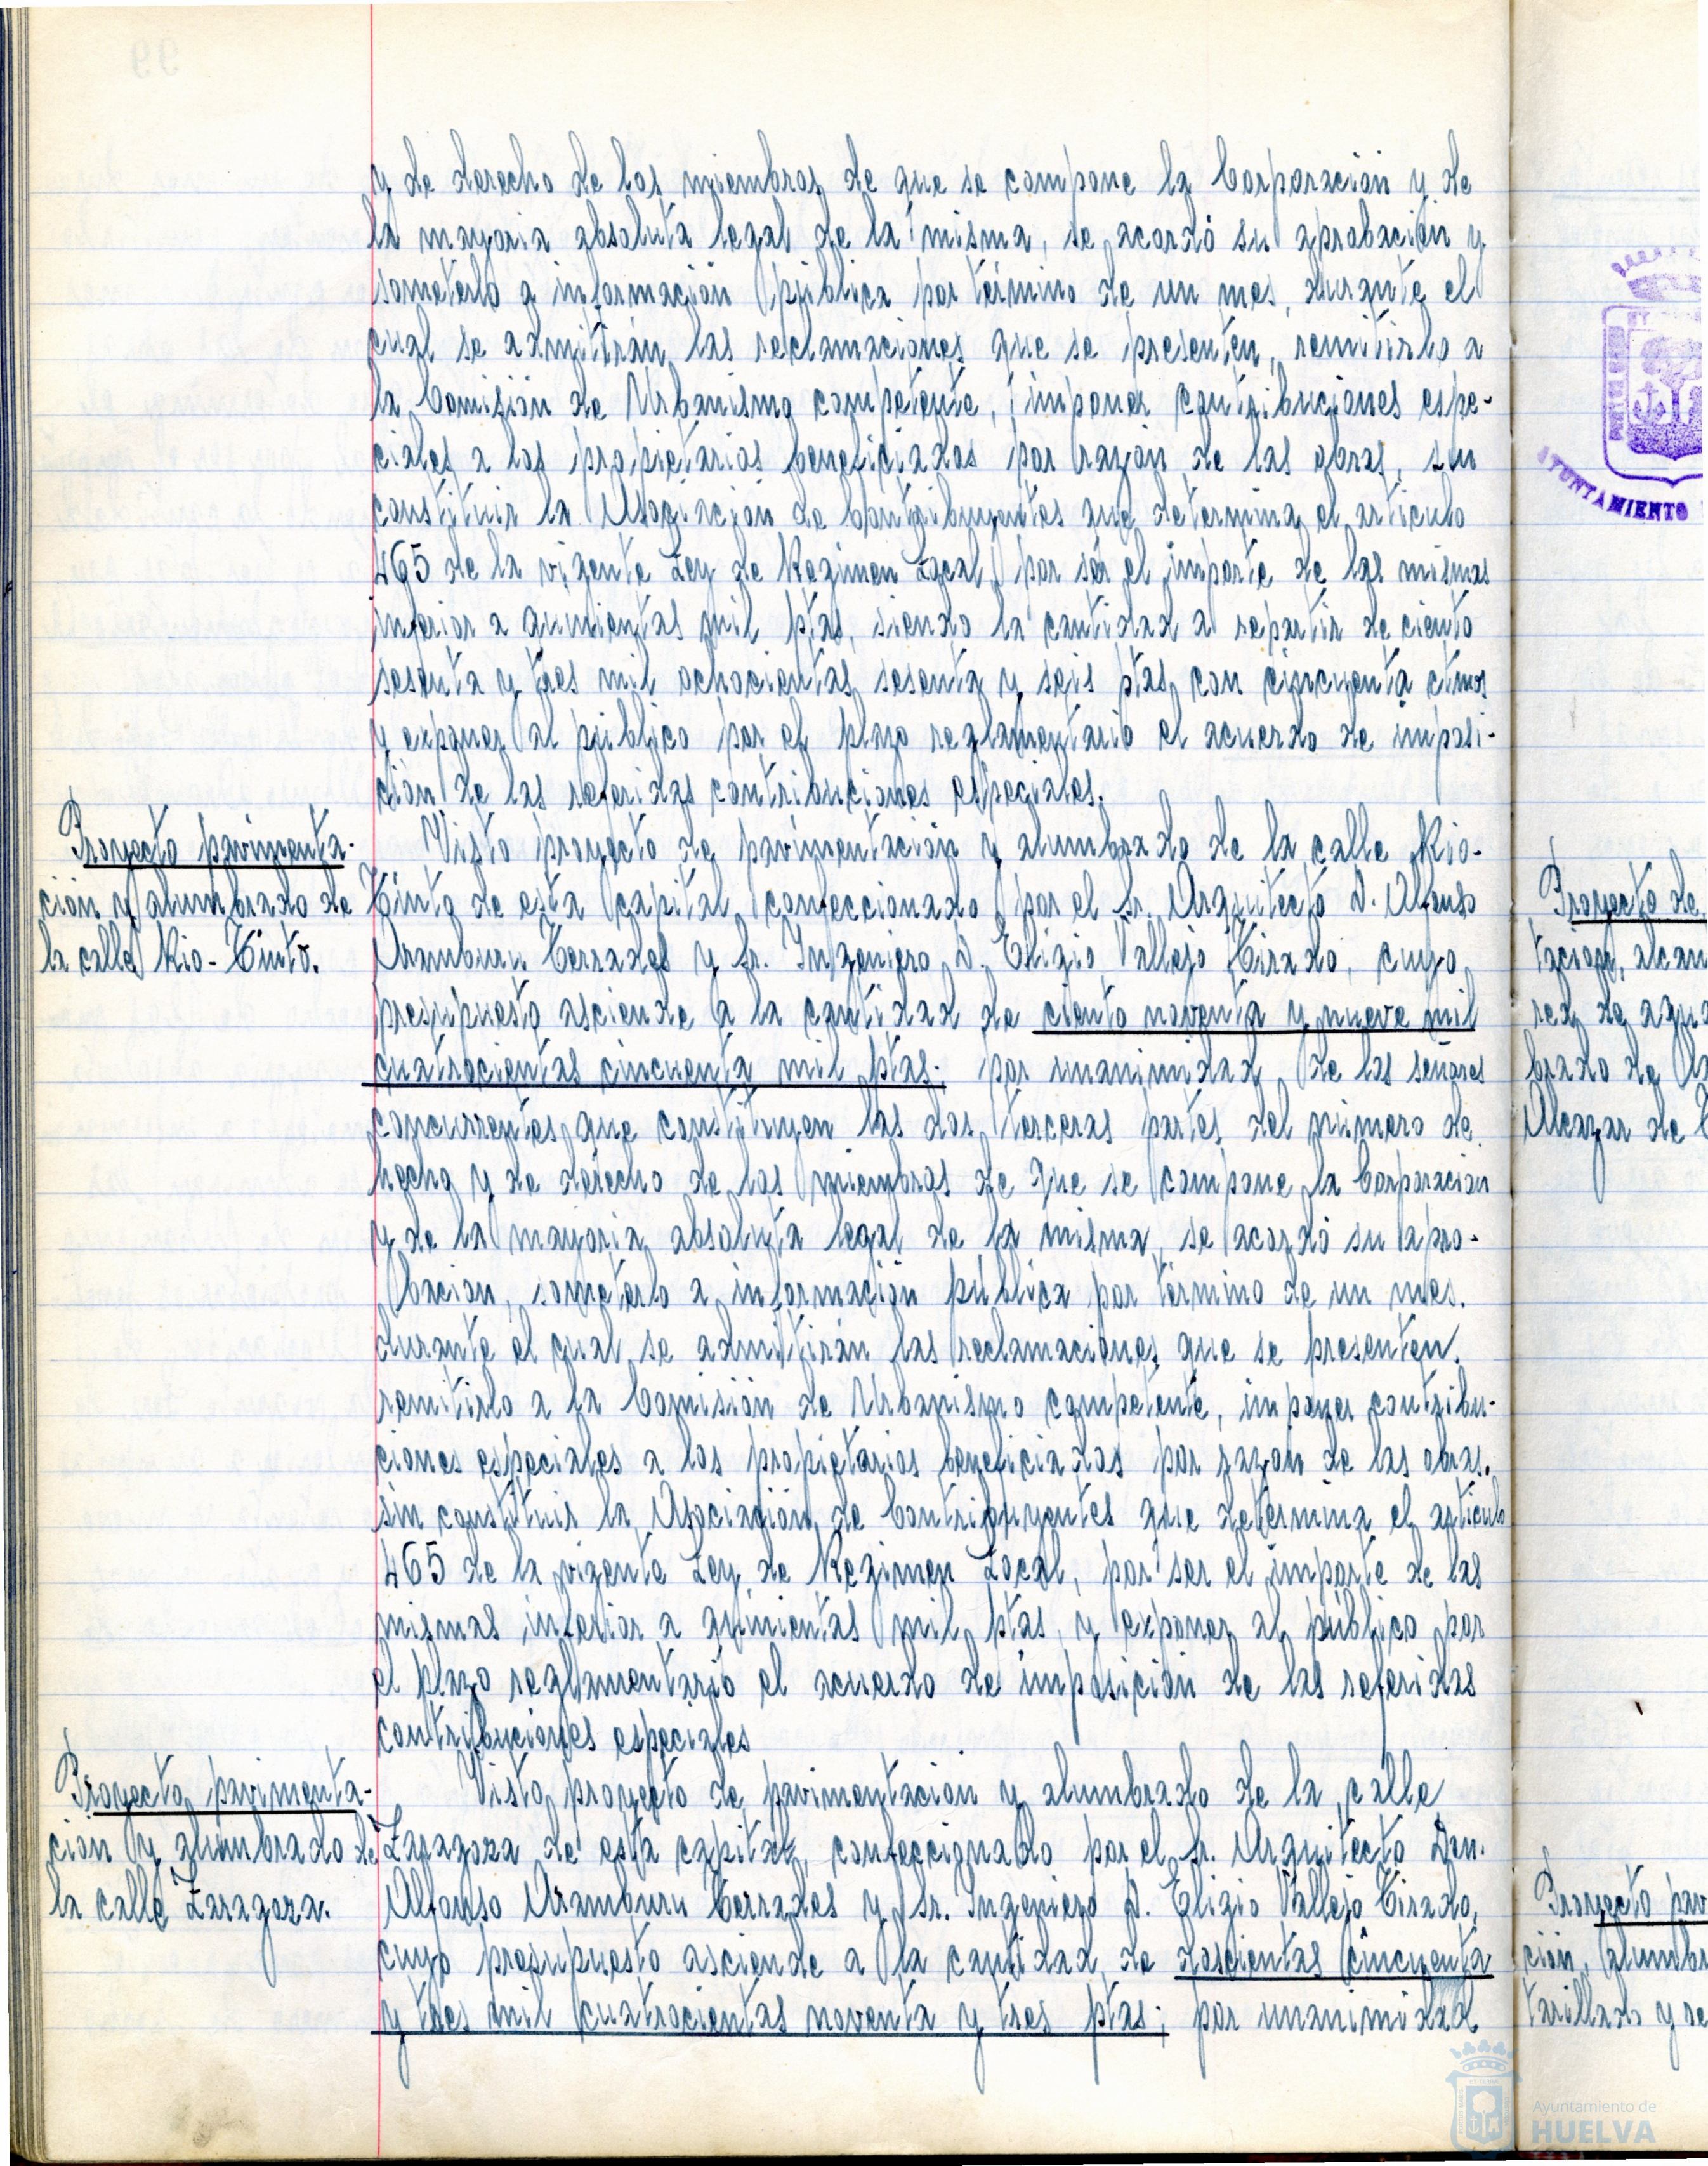 y de derecho de los miembros de que se compone la Corporación y de
la mayoria absoluta legal de la misma, se acordó su aprobación y
someterlo a información pública por término de un mes, durante el
cual se admitirán las reclamaciones que se presenten, remitirlo a
la Comisión de Urbanismo competente, imponer contribuciones espe-
ciales a los propietarios beneficiados por razón de las obras, sin
constituir la Asociación de Contribuyentes que determina el articulo
465 de la vigente Ley de Regimen Local, por ser el importe de las mismas
inferior a quinientas mil ptas, siendo la cantidad a repartir de ciento
sesenta y tres mil ochocientas sesenta y seis ptas con cincuenta ctmos
y exponer al público por el plazo reglamentario el acuerdo de imposi-
ción de las referidas contribuciones especiales.
Proyecto pavimenta-
ción y alumbrado de
la calle Rio-Tinto.
Visto proyecto de pavimentación y alumbrado de la calle Rio-
Tinto de esta capital, confeccionado por el Sr. Arquitecto D. Alfonso
Aramburu Terrades y Sr. Ingeniero D. Eligio Vallejo Tirado, cuyo
presupuesto asciende a la cantidad de ciento noventa y nueve mil
cuatrocientas cincuenta mil ptas. por unanimidad de los señores
concurrentes que constituyen las dos terceras partes del número de
hecho y de derecho de los miembros de que se compone la Corporación
y de la mayoria absoluta legal de la misma, se acordó su apro-
bacion, someterlo a información pública por término de un mes.
durante el cual se admitirán las reclamaciones que se presenten.
remitirlo a la Comisión de Urbanismo competente, imponer contribu-
ciones especiales a los propietarios beneficiados por razon de las obras.
sin constituir la Asociación de Contribuyentes que determina el articulo
465 de la vigente Ley de Regimen Local, por ser el importe de las
mismas inferior a quinientas mil ptas, y exponer al público por
el plazo reglamentario el acuerdo de imposición de las referidas
contribuciones especiales
Proyecto pavimenta-
cion y alumbrado de
la calle Zaragoza.
Visto proyecto de pavimentacion y alumbrado de la calle
Zaragoza de esta capital, confeccionado por el Sr. Arquitecto Don.
Alfonso Aramburu Terrades y Sr. Ingeniero D. Eligio Vallejo Tirado,
cuyo presupuesto asciende a la cantidad de doscientas cincuenta
y tres mil cuatrocientas noventa y tres ptas; por unanimidad
AYUNTAMIENTO
Proyecto de
tacion, alcan
red de agua
brado de la
Alcazar de
Proyecto pav
ción, alumbr
tarillado y re
Ayuntamiento de
HUELVA